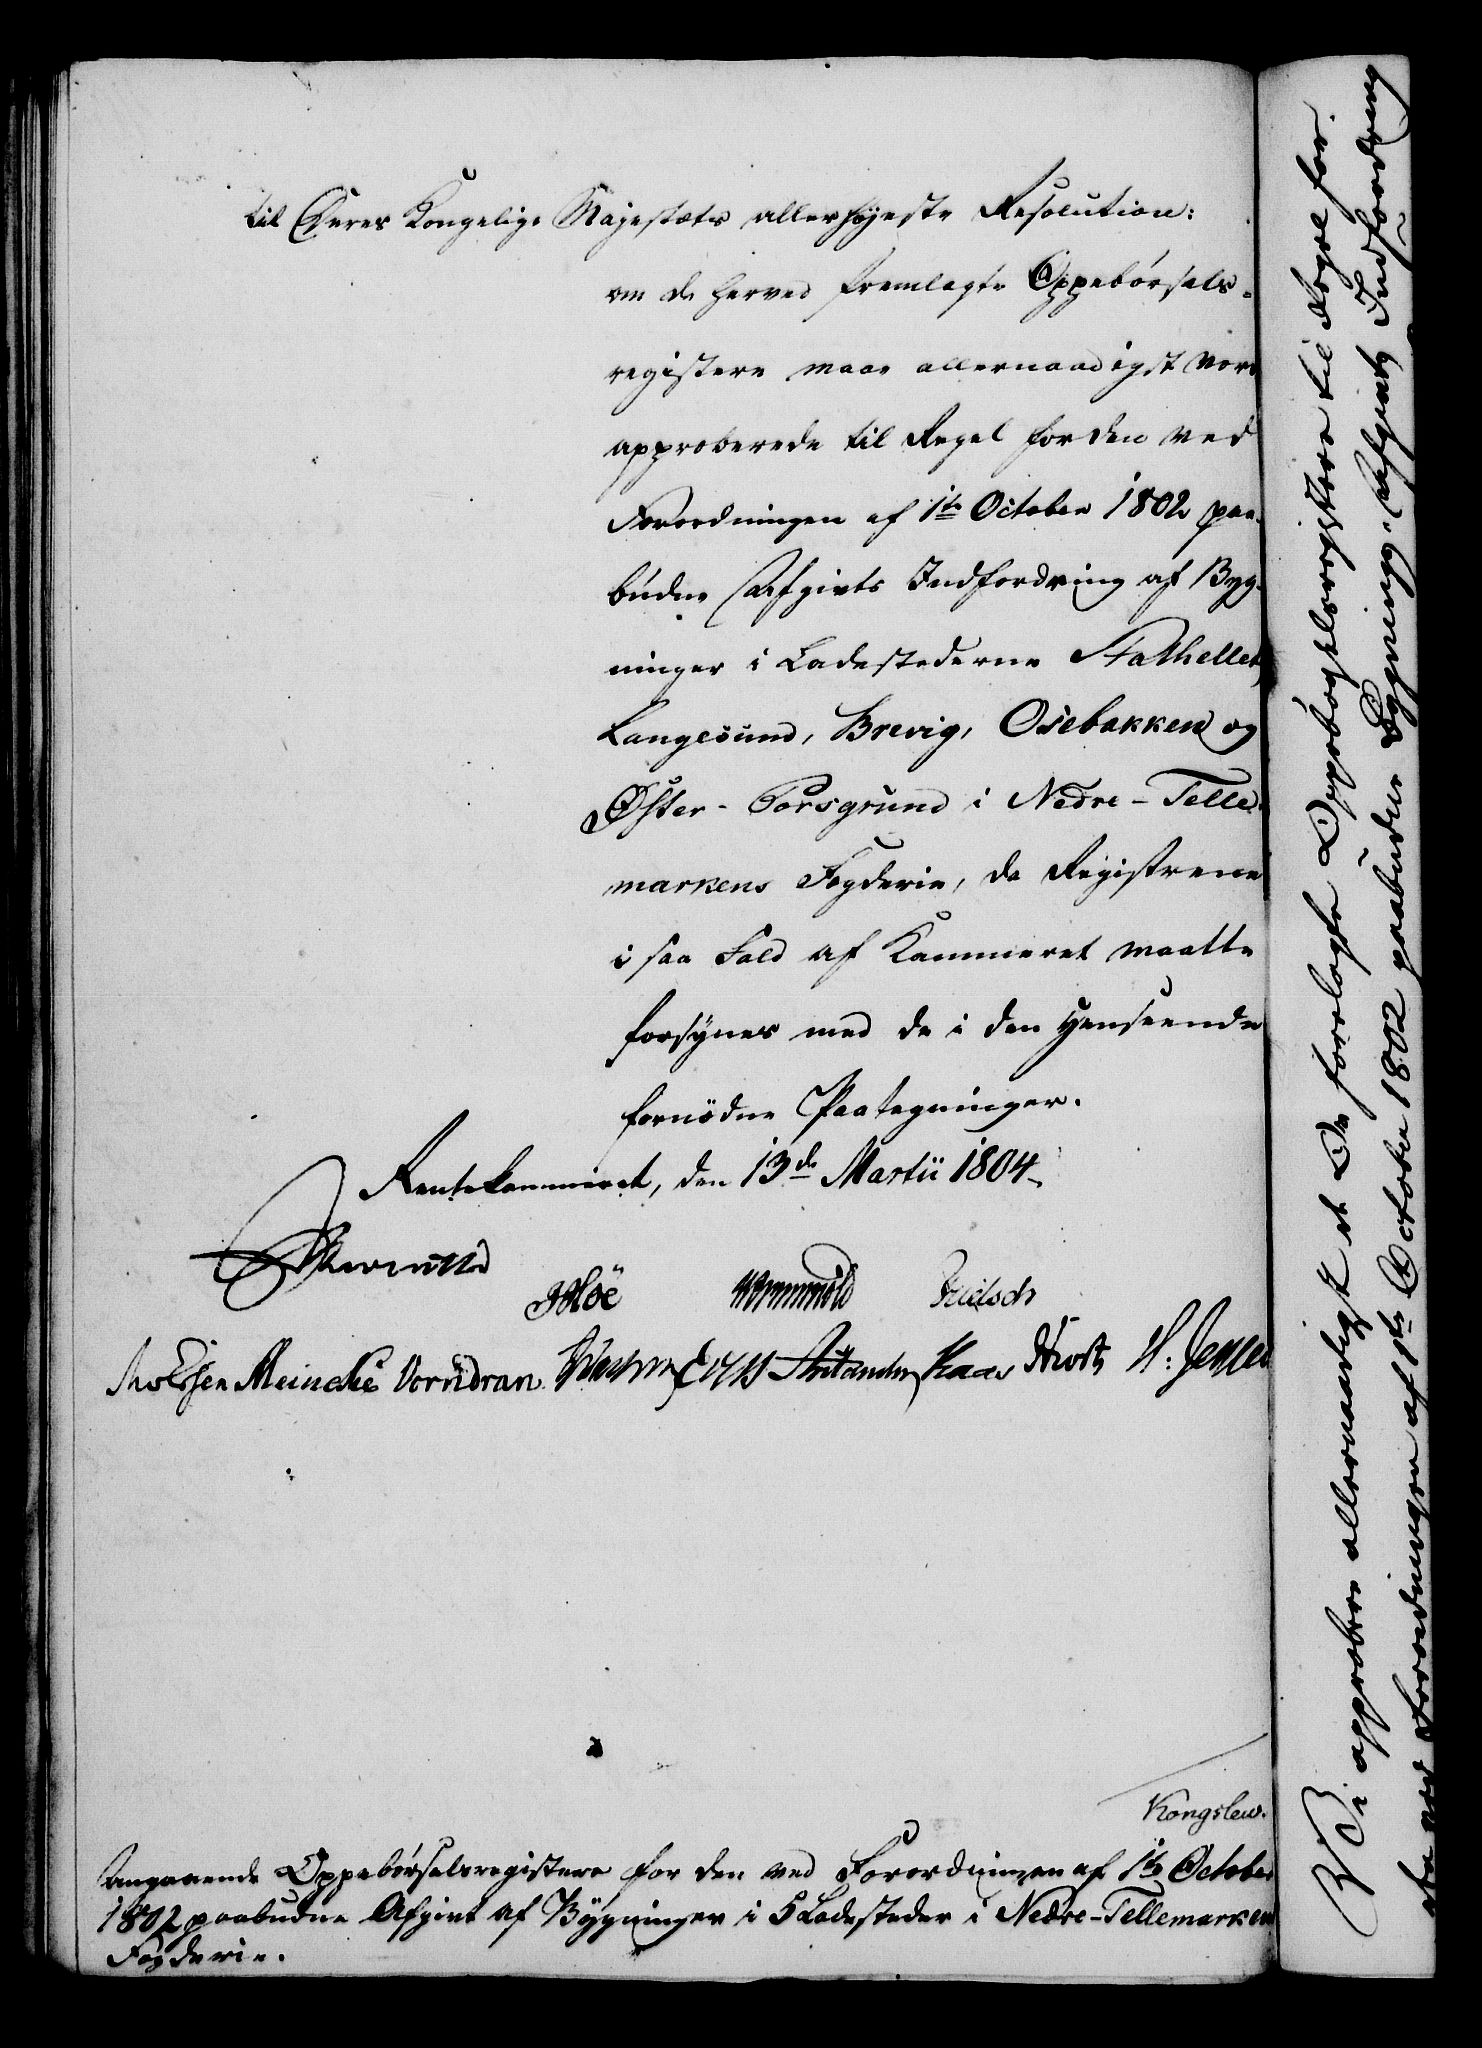 til Deres Kongelige Majestæts allerhøjeste Resolution:
om de herved fremlagte Oppebørsels-
registere maae allernaadigst vore
approberede til Regel for den ved
Forordningen af 1te October 1802 paa-
budne Afgivts Indfordring af Byg-
ninger i Ladestederne Stathellet,
Langesund, Brevig, Osebakken og
Øster-Porsgrund i Nedre-Telle-
markens Fogderie, da Registrene
i saa Fald af Kammeret maatte
forsynes med de i den Henseende
fornødne Paategninger.
Rentekammeret, den 13de Martii 1804.
Reventlow
Wormskiold Fridsch
Meincke Vorndran Kaas H: Jensen
Kongslew.
Angaaende Oppebørselsregistere for den ved Forordningen af 1te October
1802 paabudne Afgivt af Bygninger i 5 Ladesteder i Nedre-Tellemarken
Fogderie.
Vi approbere allernaadigst at De forelagte Oppebørselsregistere til Regel for
den ved Forordningen af 1te October 1802 paabudne Bygnings-Afgivts Indfordring